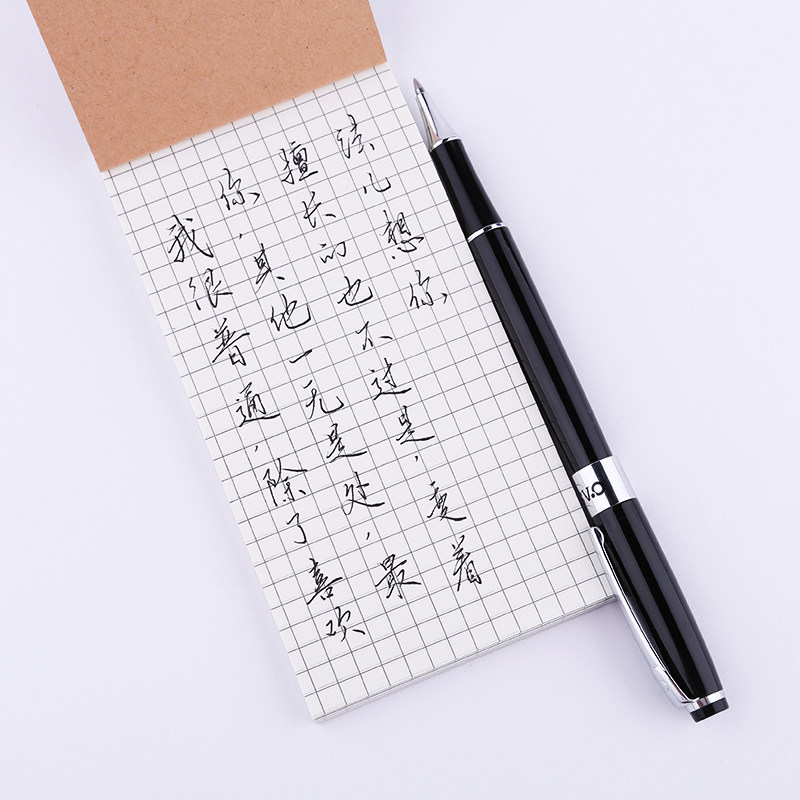 我很普通，除了喜欢
你，其他一无是处，最
擅长的也不过是，变着
法儿想你
V.O